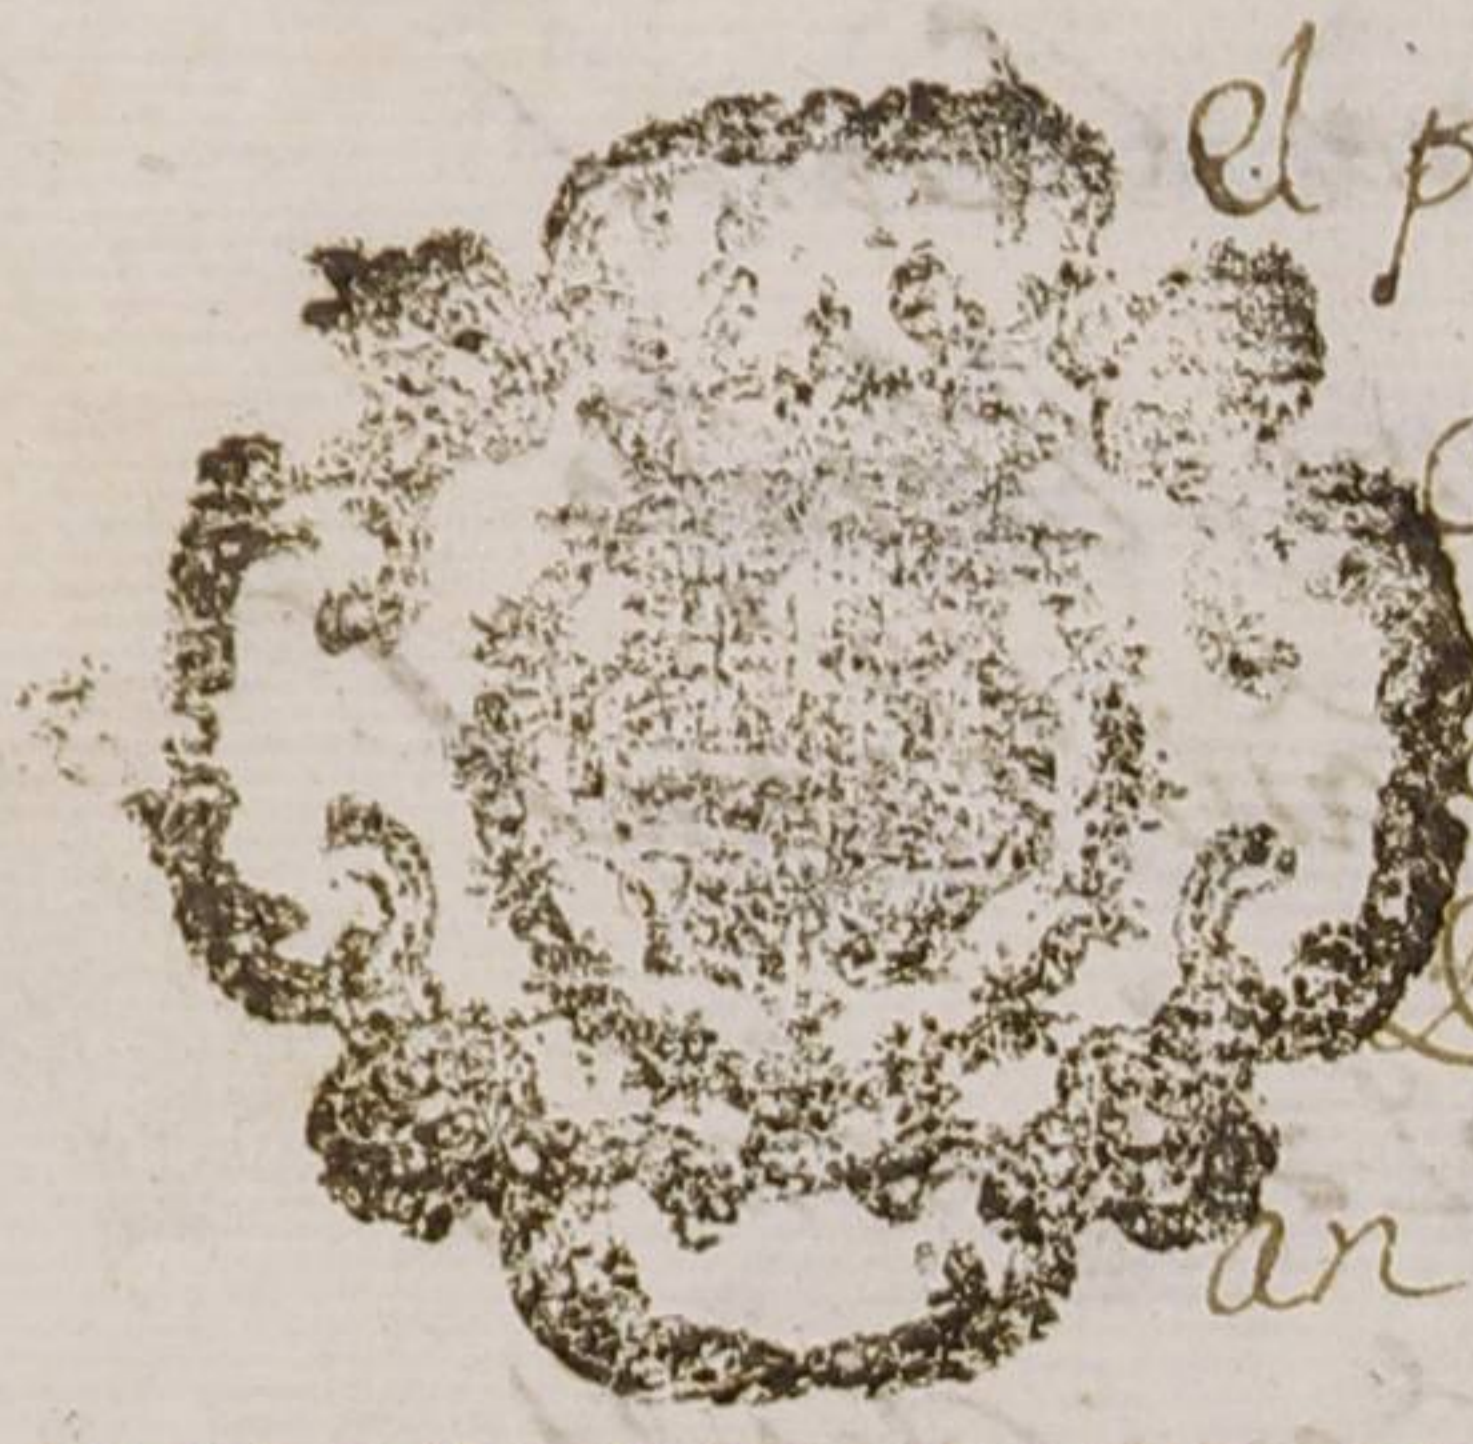 el p
an